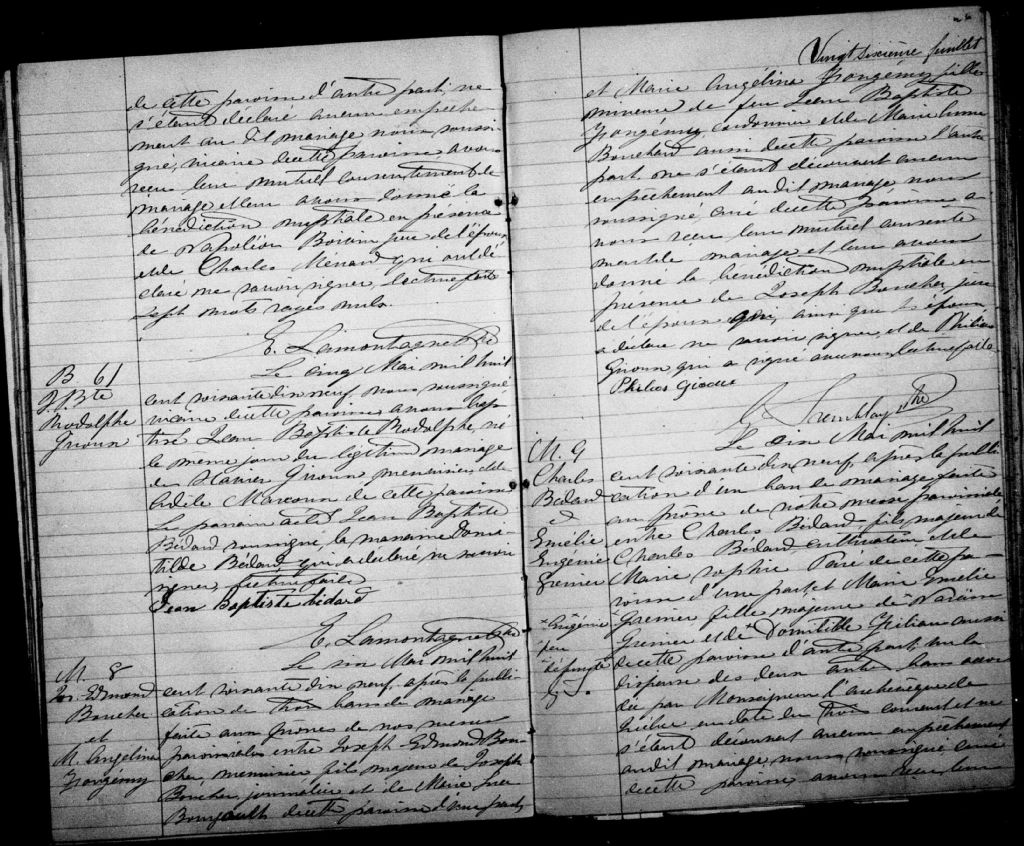 de cette paroisse d'autre part; ne
s'étant déclaré aucun empêche
ment au dit mariage nous soussi
gné, vicaire de cette paroisse avons
reçu leur mutuel consentement de
mariage et leur avons donné la
bénédiction nuptiale en présence
de Napoléon père de l'époux
et de Charles Ménard qui ont dé
claré ne savoir signer, lecture faite
Sept mots rayés nuls.
E. Lamontagne Ptre
B 61
J. Bte
Rodolphe
Giroux
Le cinq Mai mil huit
cent soixante dix neuf nous soussigné
vicaire de cette paroisse avons bap
tisé Jean Baptiste Rodolphe, né
le même jour du légitime mariage
de Giroux menuisier et de
Adèle Marcoux de cette paroisse
Le parrain a été Jean Baptiste
Bédard soussigné, la marraine Domi
tilde Bédard qui a déclaré ne savoir
signer, lecture faite
Jean Baptiste bédard
E. Lamontagne Ptre
M. 8
Jos. Edmond
Boucher
et
M. Angélina
Le six Mai mil huit
cent soixante dix neuf, après la publi
cation de trois bans de mariage
faite aux prônes de nos messes
paroissiales entre Joseph Edmond Bou
cher, menuisier fils majeur de Joseph
Boucher journalier et de Marie Luce
de cette paroisse d'une part,
Vingt sixième feuillet
et Marie Angélina fille
mineure de feu Jean Baptiste
cordonnier et de Marie
Bouchard aussi de cette paroisse d'autre
part ne s'étant découvert aucun
empêchement au dit mariage, nous
soussigné curé de cette paroisse a
vons reçu leur mutuel consente
ment de mariage et leur avons
donné la bénédiction nuptiale en
présence de Joseph Boucher, père
de l'époux qui, ainsi que époux
a déclaré ne savoir signer et de
Giroux qui a signé avec nous, lecture faite
Giroux
G. Tremblay Ptre
M. 9
Charles
Bédard
et
Emélie
Eugénie
Grenier
Le six Mai mil huit
cent soixante dix neuf, après la publi
cation d'un ban de mariage faite
au prône de notre messe paroissiale
entre Charles Bédard fils majeur de
Charles Bédard cultivateur et de
Marie Sophie Paré de cette pa
roisse d'une part et Marie Emélie
x Eugénie
+ feu
défunte
G. T.
x Grenier fille majeure de +
Grenier et de + Domitilde aussi
de cette paroisse d'autre part, vu la
dispense des deux autres bans accor
dée par Monseigneur l'archevêque de
Québec en date du trois courant et ne
s'étant découvert aucun empêchement
au dit mariage, nous, soussigné curé
de cette paroisse, avons reçu leur